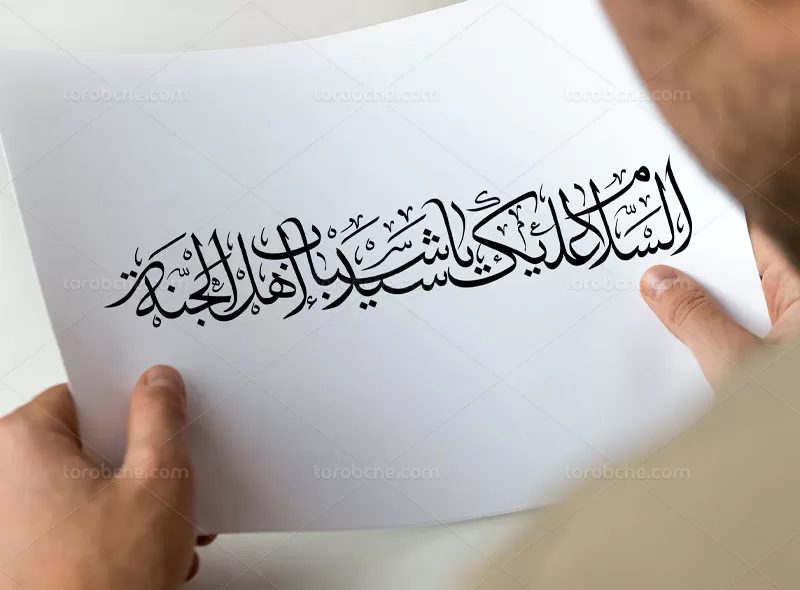 torobche.com torobche.com torobche.com
السلام علیک یا سید شباب أهل الجنة
torobche.com torobche.com torobche.com
torobche.com torobche.com torobche.com